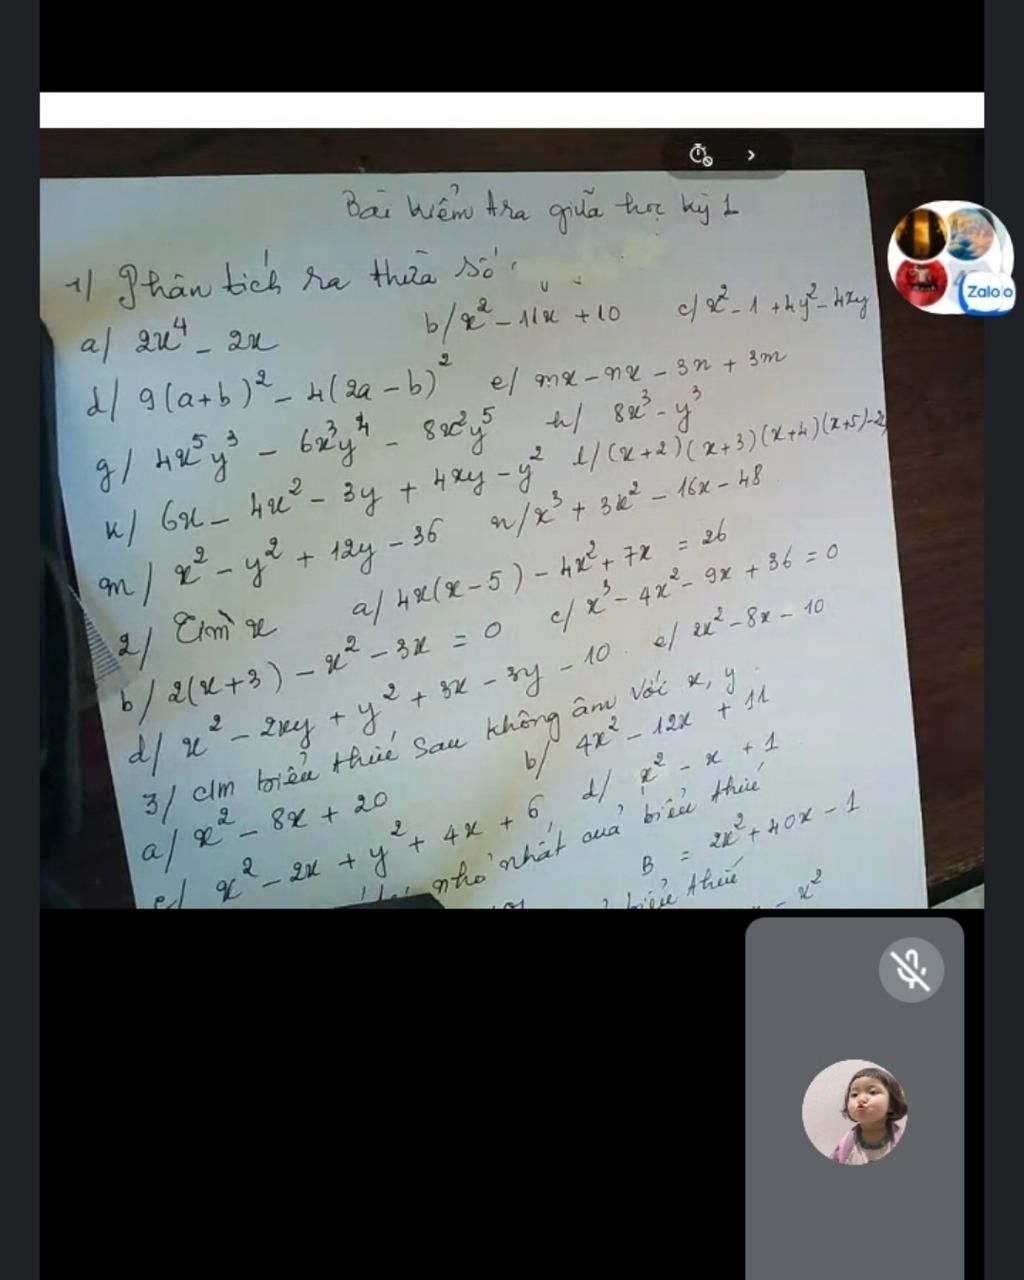 Bài kiểm tra giữa học kỳ 1
1/ Phân tích ra thừa số
a/ 2x⁴ - 2x b/ x² - 11x + 10 c/ x² - 1 + 4y² - 4xy
d/ 9(a+b)² - 4(2a - b)² e/ mx - nx - 3n + 3m
g/ 4x⁵y³ - 6x³y⁴ - 8x²y⁵ h/ 8x³ - y³
k/ 6x - 4x² - 3y + 4xy - y² l/ (x+2)(x+3)(x+4)(x+5) - 2
m/ x² - y² + 12y - 36 n/ x³ + 3x² - 16x - 48
2/ Tìm x a/ 4x(x-5) - 4x² + 7x = 26
b/ 2(x+3) - x² - 3x = 0 c/ x³ - 4x² - 9x + 36 = 0
d/ x² - 2xy + y² + 3x - 3y - 10 e/ 2x² - 8x - 10
3/ Cm biểu thức sau không âm với x, y
a/ x² - 8x + 20 b/ 4x² - 12x + 11
c/ x² - 2x + y² + 4x + 6, d/ x² - x + 1
nhỏ nhất của biểu thức
B = 2x² + 40x - 1
biểu thức
- x²
Zalo